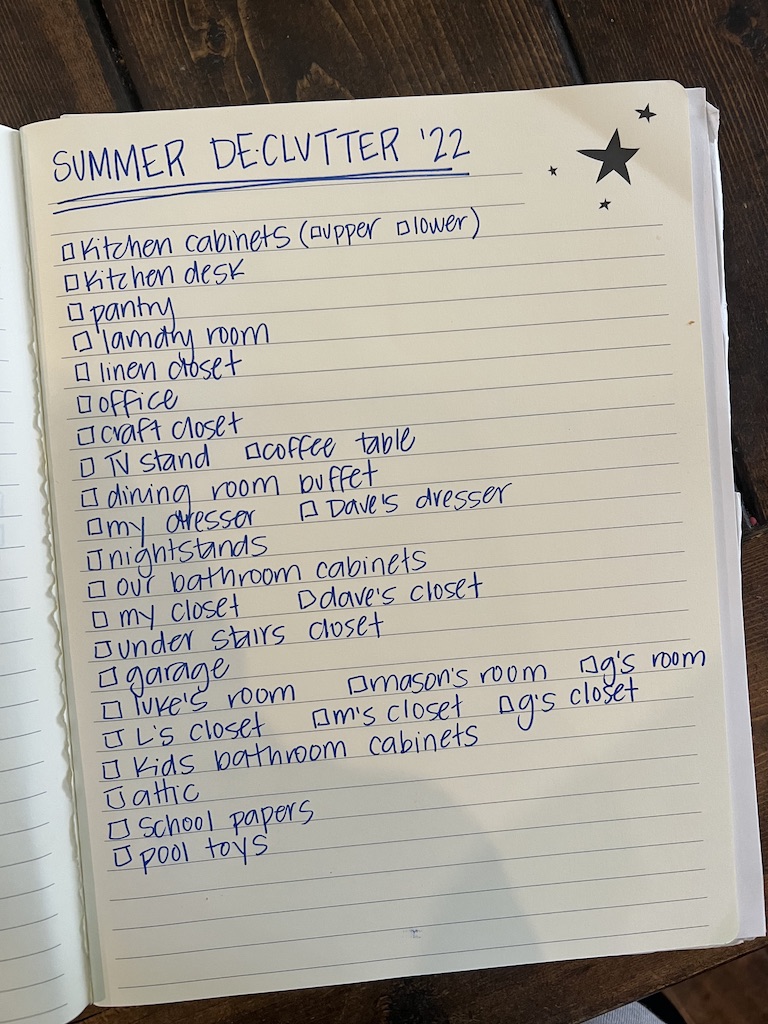 SUMMER DECLUTTER '22
□ Kitchen cabinets (□ upper □ lower)
□ Kitchen desk
□ pantry
□ laundry room
□ linen closet
□ office
□ craft closet
□ TV stand □ coffee table
□ dining room buffet
□ my dresser □ Dave's dresser
□ nightstands
□ our bathroom cabinets
□ my closet □ dave's closet
□ under stairs closet
□ garage
□ luke's room □ mason's room □ g's room
□ L's closet □ m's closet □ g's closet
□ Kids bathroom cabinets
□ attic
□ School papers
□ pool toys